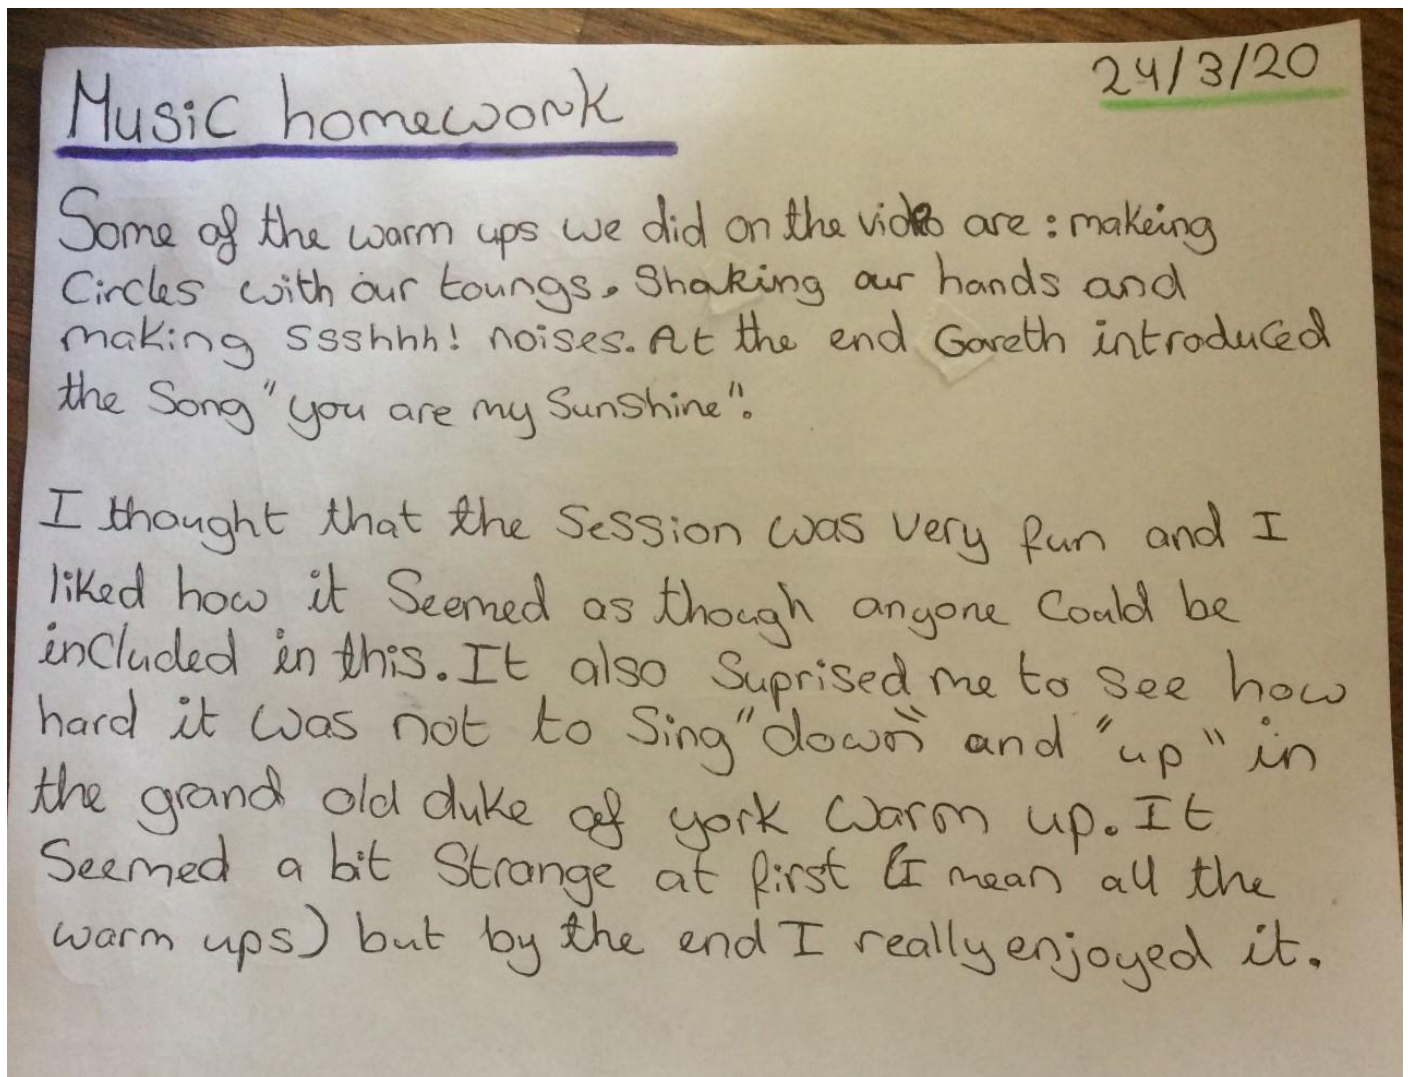 Music homework
24/3/20
Some of the warm ups we did on the video are : makeing
Circles with our toungs. Shaking our hands and
making ssshhh! noises. At the end Gareth introduced
the Song "you are my Sunshine".
I thought that the Session was very fun and I
liked how it Seemed as though anyone Could be
included in this. It also Suprised me to see how
hard it was not to Sing "down" and "up" in
the grand old duke of york warm up. It
Seemed a bit Strange at first (I mean all the
warm ups) but by the end I really enjoyed it.